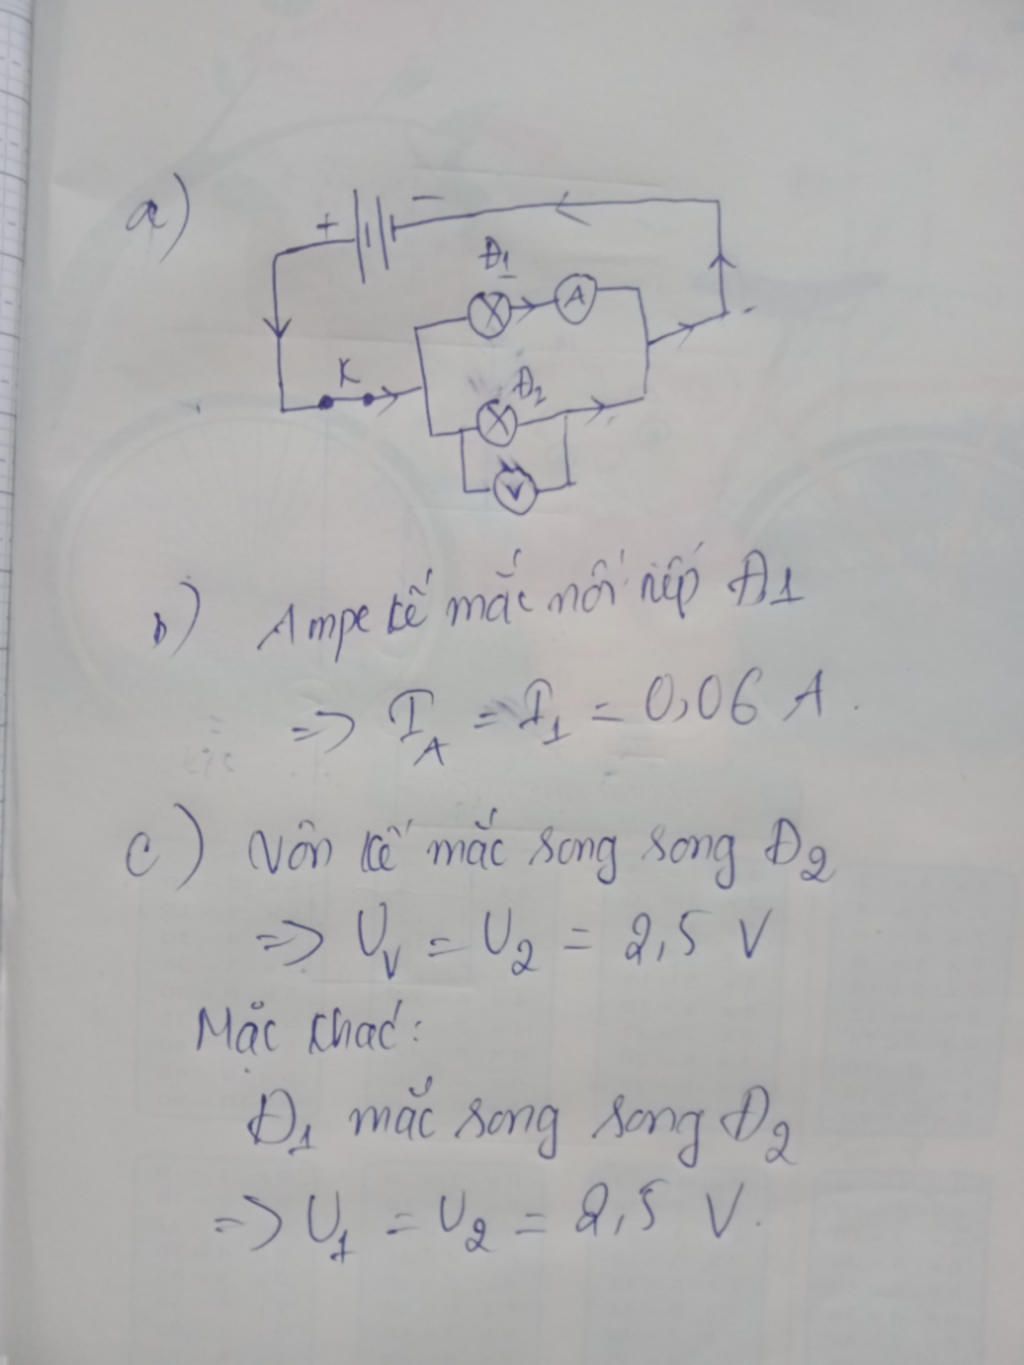 a)
+ −
Đ1
A
K
Đ2
V
b) Ampe kế mắc nối tiếp Đ1
=> I_A = I_1 = 0,06 A.
c) Vôn kế mắc song song Đ2
=> U_V = U_2 = 2,5 V
Mặc khác:
Đ1 mắc song song Đ2
=> U_1 = U_2 = 2,5 V.